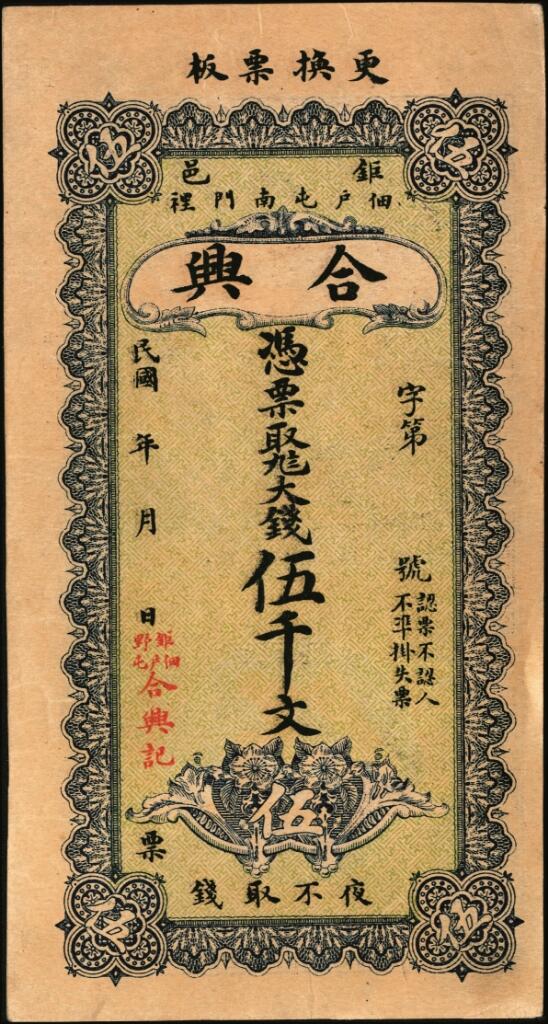 更換票板
鉅邑
佃戶屯南門裡
合興
字第號
認票不認人
不準掛失票
憑票取九三大錢伍千文
民國年月日
鉅野
佃户屯
合興記
票
伍
夜不取錢
伍
伍
伍
伍